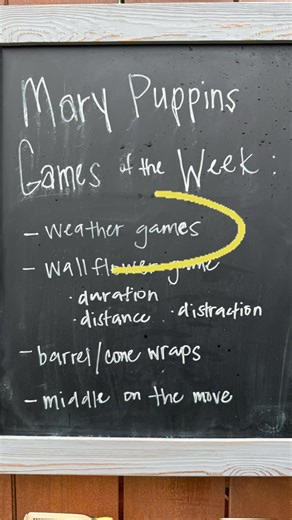 Mary Puppins
Games of the Week:
- weather games
- wallflower game
· duration
· distance · distraction
- barrel/cone wraps
- middle on the move